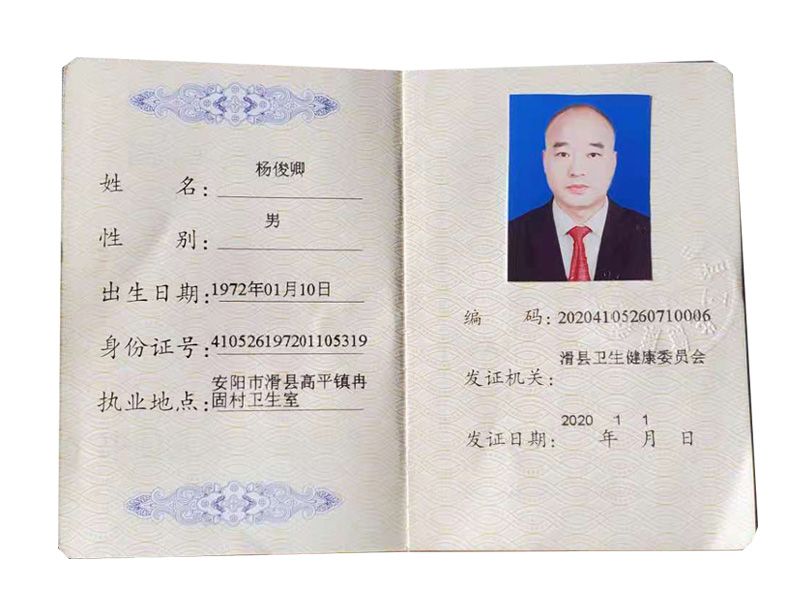 姓 名： 杨俊卿
性 别： 男
出生日期：1972年01月10日
身份证号：410526197201105319
执业地点：安阳市滑县高平镇冉
固村卫生室
编 码：20204105260710006
发证机关： 滑县卫生健康委员会
发证日期： 2020 年 1 月 1 日